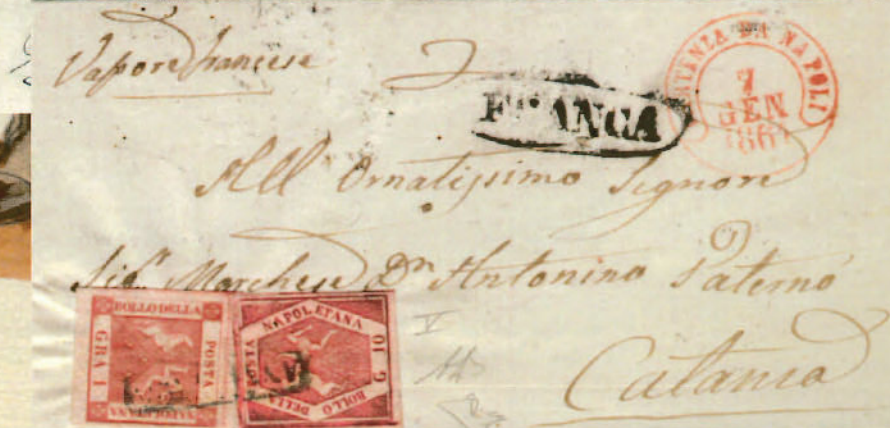 Vapore francese
FRANCA
PARTENZA DA NAPOLI
7
GEN
186
All Ornatissimo Signore
Sigr. Marchese Dn Antonino Paternò
Catania
BOLLO DELLA
POSTA
NAPOLETANA
GRA 1
BOLLO DELLA
POSTA
NAPOLETANA
G 10